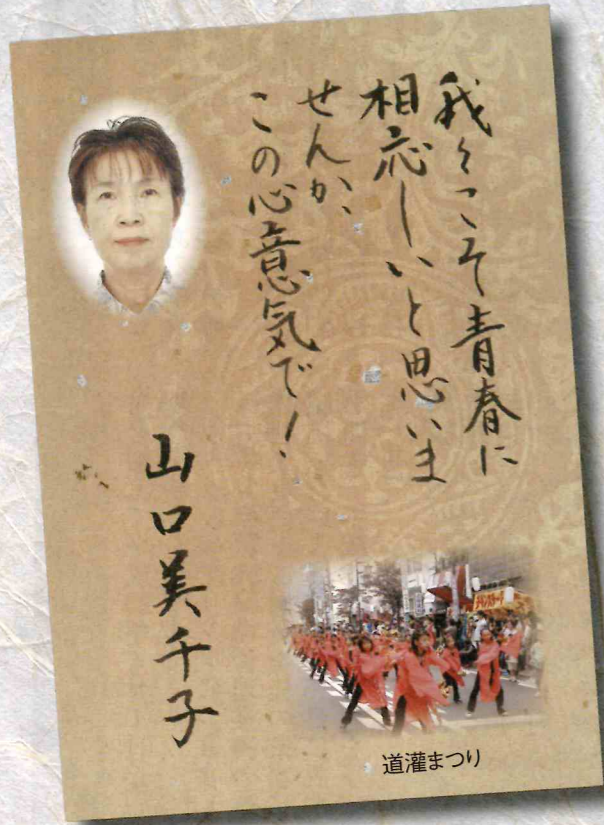 我々こそ青春に
相応しいと思いま
せんか、
この心意気で!
山口美千子
道灌まつり